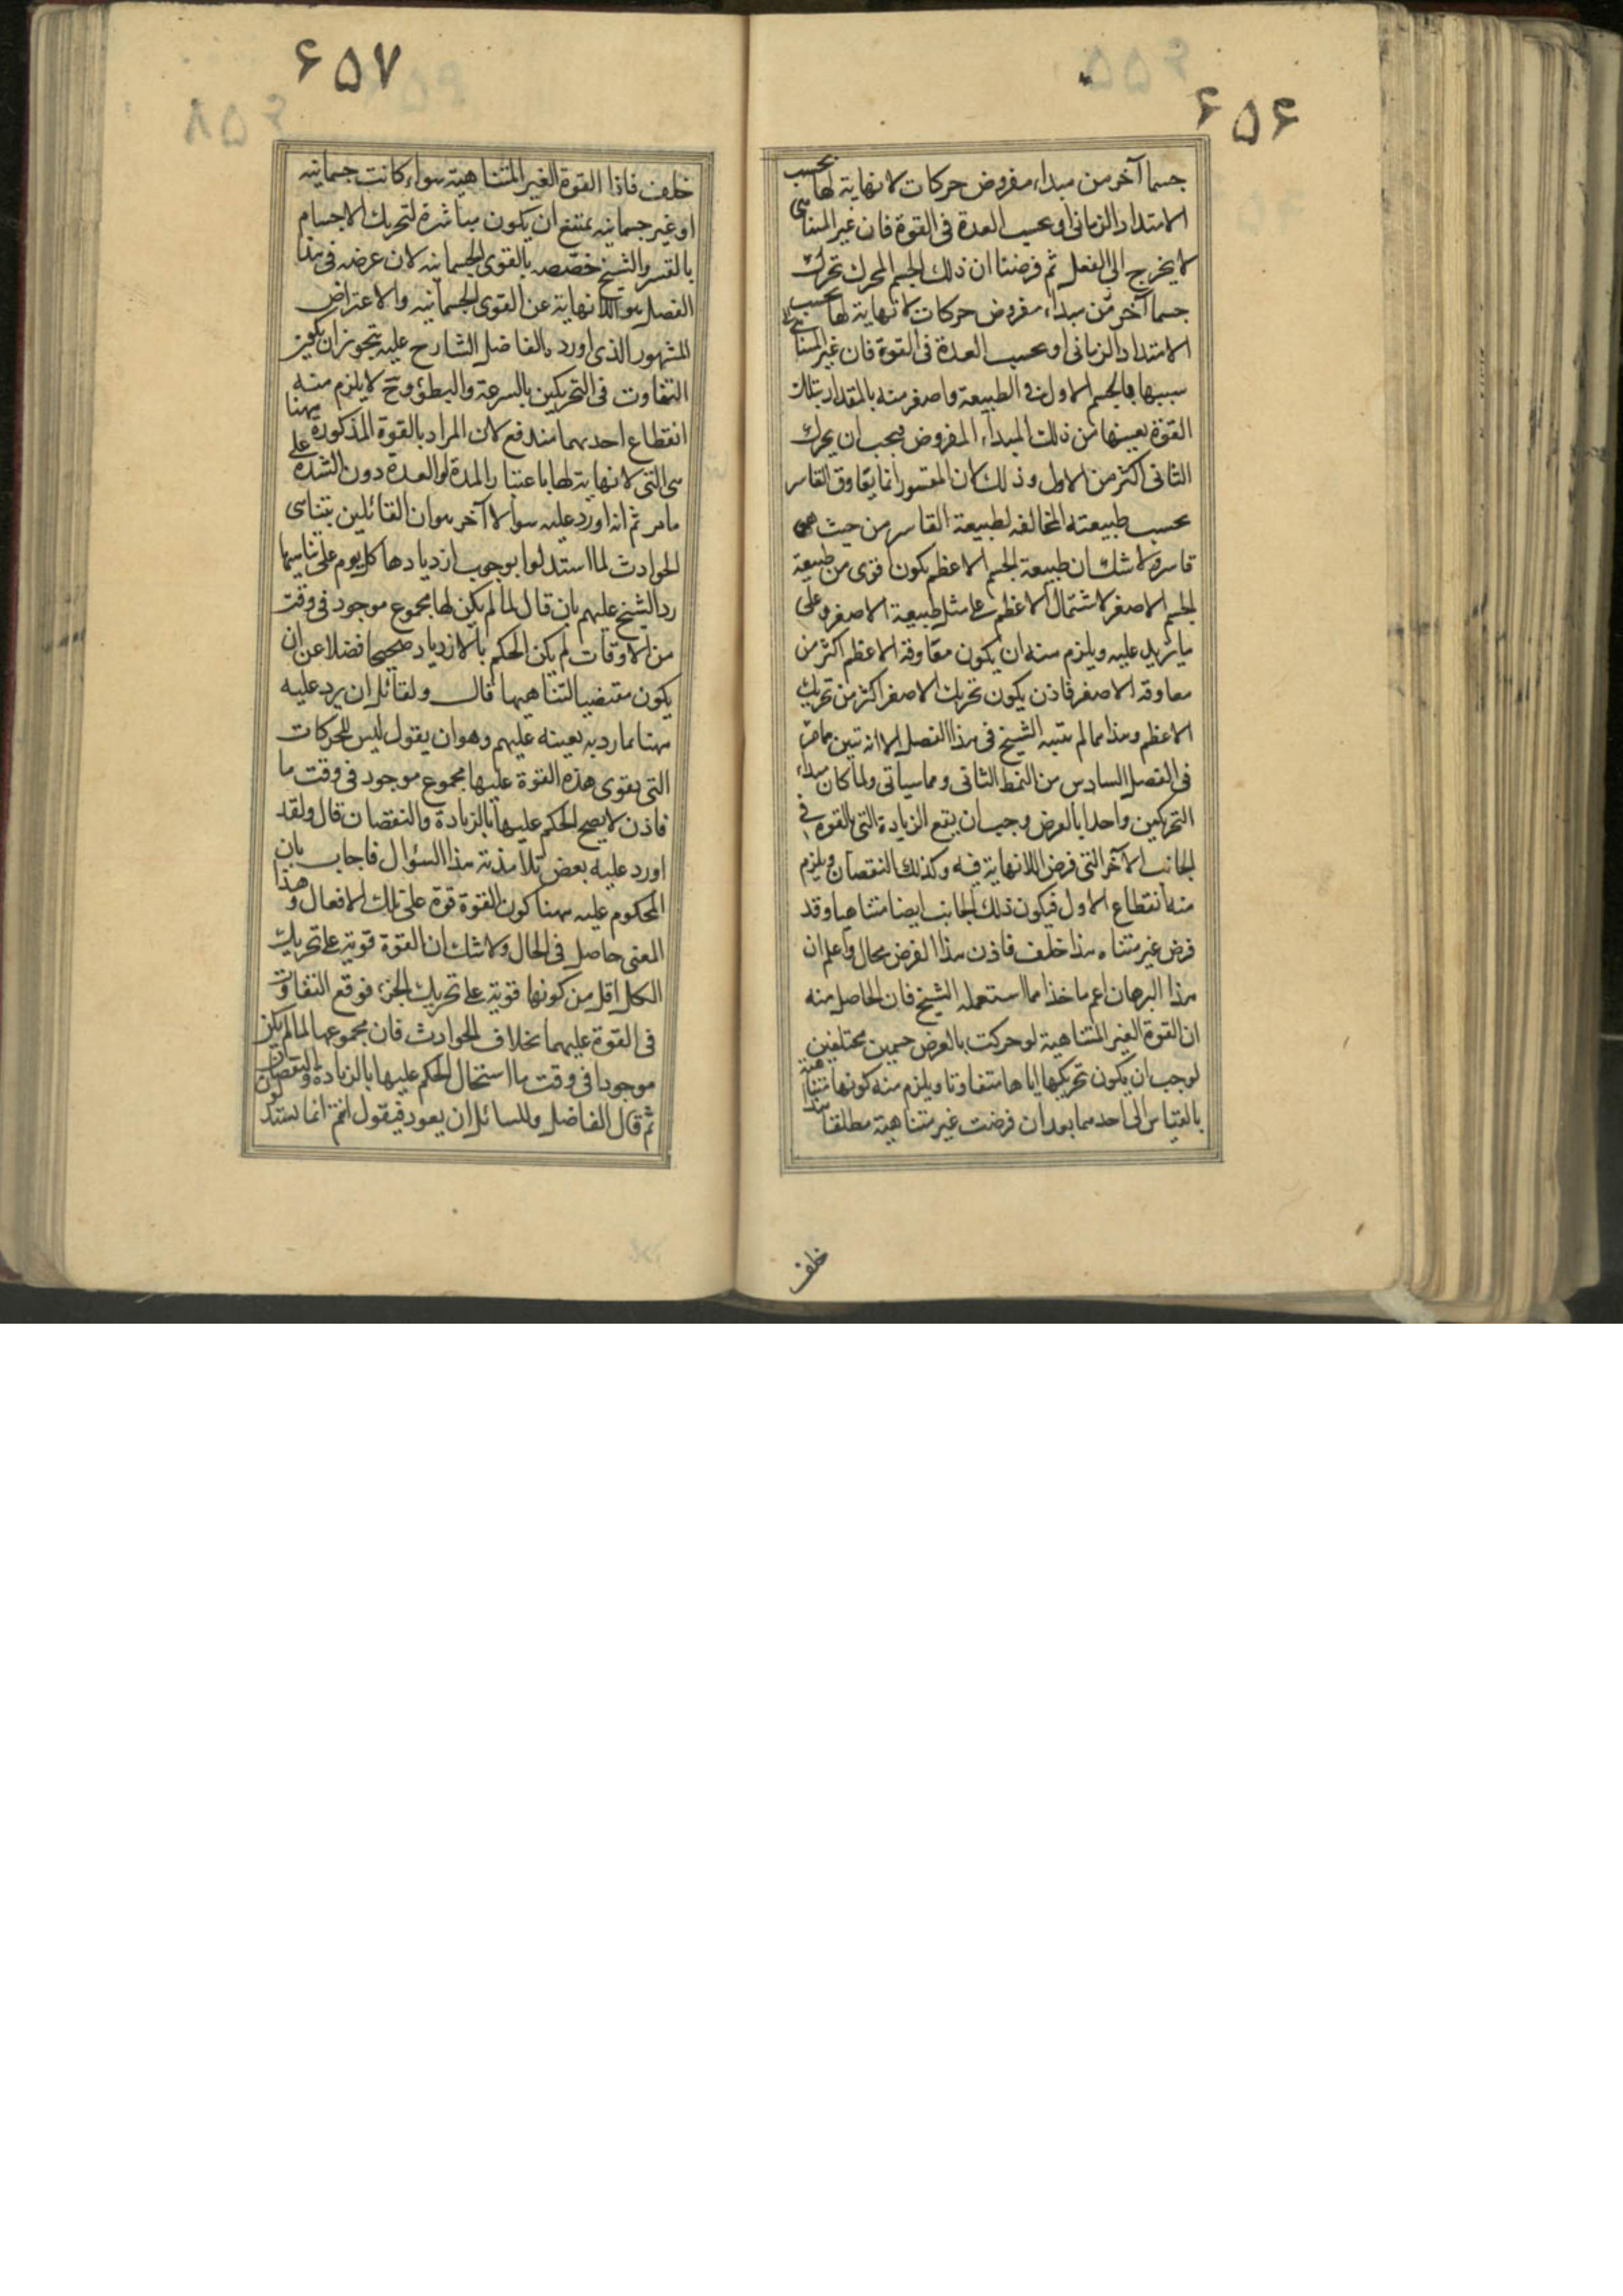 ۶۵۶
جسما آخر من مبداء مفروض حركات لا نهاية لها بحسب
الامتداد الزمانى او بحسب العدة فى القوة فان غير المتناهى
لا يخرج الى الفعل ثم فرضنا ان ذلك الجسم المحرك تحرك
جسما آخر من مبداء مفروض حركات لا نهاية لها بحسب
الامتداد الزمانى او بحسب العدة فى القوة فان غير المتناهى لا
سببها بالجسم الاول فى الطبيعة واصغر منه بالمقدار بتلك
القوة بعينها من ذلك المبداء المفروض فيجب ان يحرك
الثانى اكثر من الاول وذلك لان المقسور انما يعاوق القاسر
بحسب طبيعته المخالفه لطبيعة القاسر من حيث هو
قاسر ولا شك ان طبيعة الجسم الاعظم يكون اقوى من طبيعة
الجسم الاصغر لاشتمال الاعظم على مثل طبيعة الاصغر وعلى
ما يزيد عليه ويلزم منه ان يكون معاوقة الاعظم اكثر من
معاوقة الاصغر فاذن يكون تحريك الاصغر اكثر من تحريك
الاعظم وهذا مما لم يتبينه الشيخ فى هذا الفصل الا انه تبين مما مر
فى الفصل السادس من النمط الثانى ومما سياتى ولما كان مبداء
التحريكين واحدا بالعرض وجب ان يقع الزيادة التى بالقوة فى
الجانب الآخر التى فرض اللانهاية فيه وكذلك النقصان ويلزم
منه انقطاع الاول فيكون ذلك الجانب ايضا متناهيا وقد
فرض غير متناه هذا خلف فاذن هذا الفرض محال واعلم ان
هذا البرهان اعم ماخذا مما استعمله الشيخ فان الحاصل منه
ان القوة الغير المتناهية لو حركت بالعرض جسمين مختلفين
لوجب ان يكون تحريكها اياهما متفاوتا ويلزم منه كونها متناهية
بالقياس الى احدهما بعد ان فرضت غير متناهية مطلقا هذا
خلف
۶۵۷
خلف فاذا القوة الغير المتناهية سواء كانت جسمانيه
او غير جسمانيه يمتنع ان يكون مباشرة لتحريك الاجسام
بالقسر والشيخ خصصه بالقوى الجسمانيه لان غرضه فى هذا
الفصل هو اللانهاية عن القوى الجسمانيه والاعتراض
المشهور الذى اورده الفاضل الشارح عليه بتجويز ان يكون
التفاوت فى التحريكين بالسرعة والبطؤ وح لا يلزم منه
انقطاع احدهما مندفع لان المراد بالقوة المذكورة ههنا
هى التى لا نهاية لها باعتبار المدة او العدة دون الشدة على
ما مر ثم انه اورد عليه سوالا آخر هو ان القائلين بتناهى
الحوادث لما استدلوا بوجوب ازديادها كل يوم على تناهيها
رد الشيخ عليهم بان قال لما لم يكن لها مجموع موجود فى وقت
من الاوقات لم يكن الحكم بالازدياد صحيحا فضلا عن ان
يكون مقتضيا لتناهيها قال ولقائل ان يرد عليه
ههنا ما رد به بعينه عليهم وهو ان يقول ليس للحركات
التى يقوى هذه القوة عليها مجموع موجود فى وقت ما
فاذن لا يصح الحكم عليها بالزيادة والنقصان قال ولقد
اورد عليه بعض تلامذته هذا السؤال فاجاب بان
المحكوم عليه ههنا كون القوة قوة على تلك الافعال وهذا
المعنى حاصل فى الحال ولا شك ان القوة قوية على تحريك
الكل اقل من كونها قوية على تحريك الجزء فوقع التفاوت
فى القوة عليهما بخلاف الحوادث فان مجموعها لما لم يكن
موجودا فى وقت ما استحال الحكم عليها بالزيادة والنقصان
ثم قال الفاضل وللسائل ان يعود فيقول انتم انما تستدلون